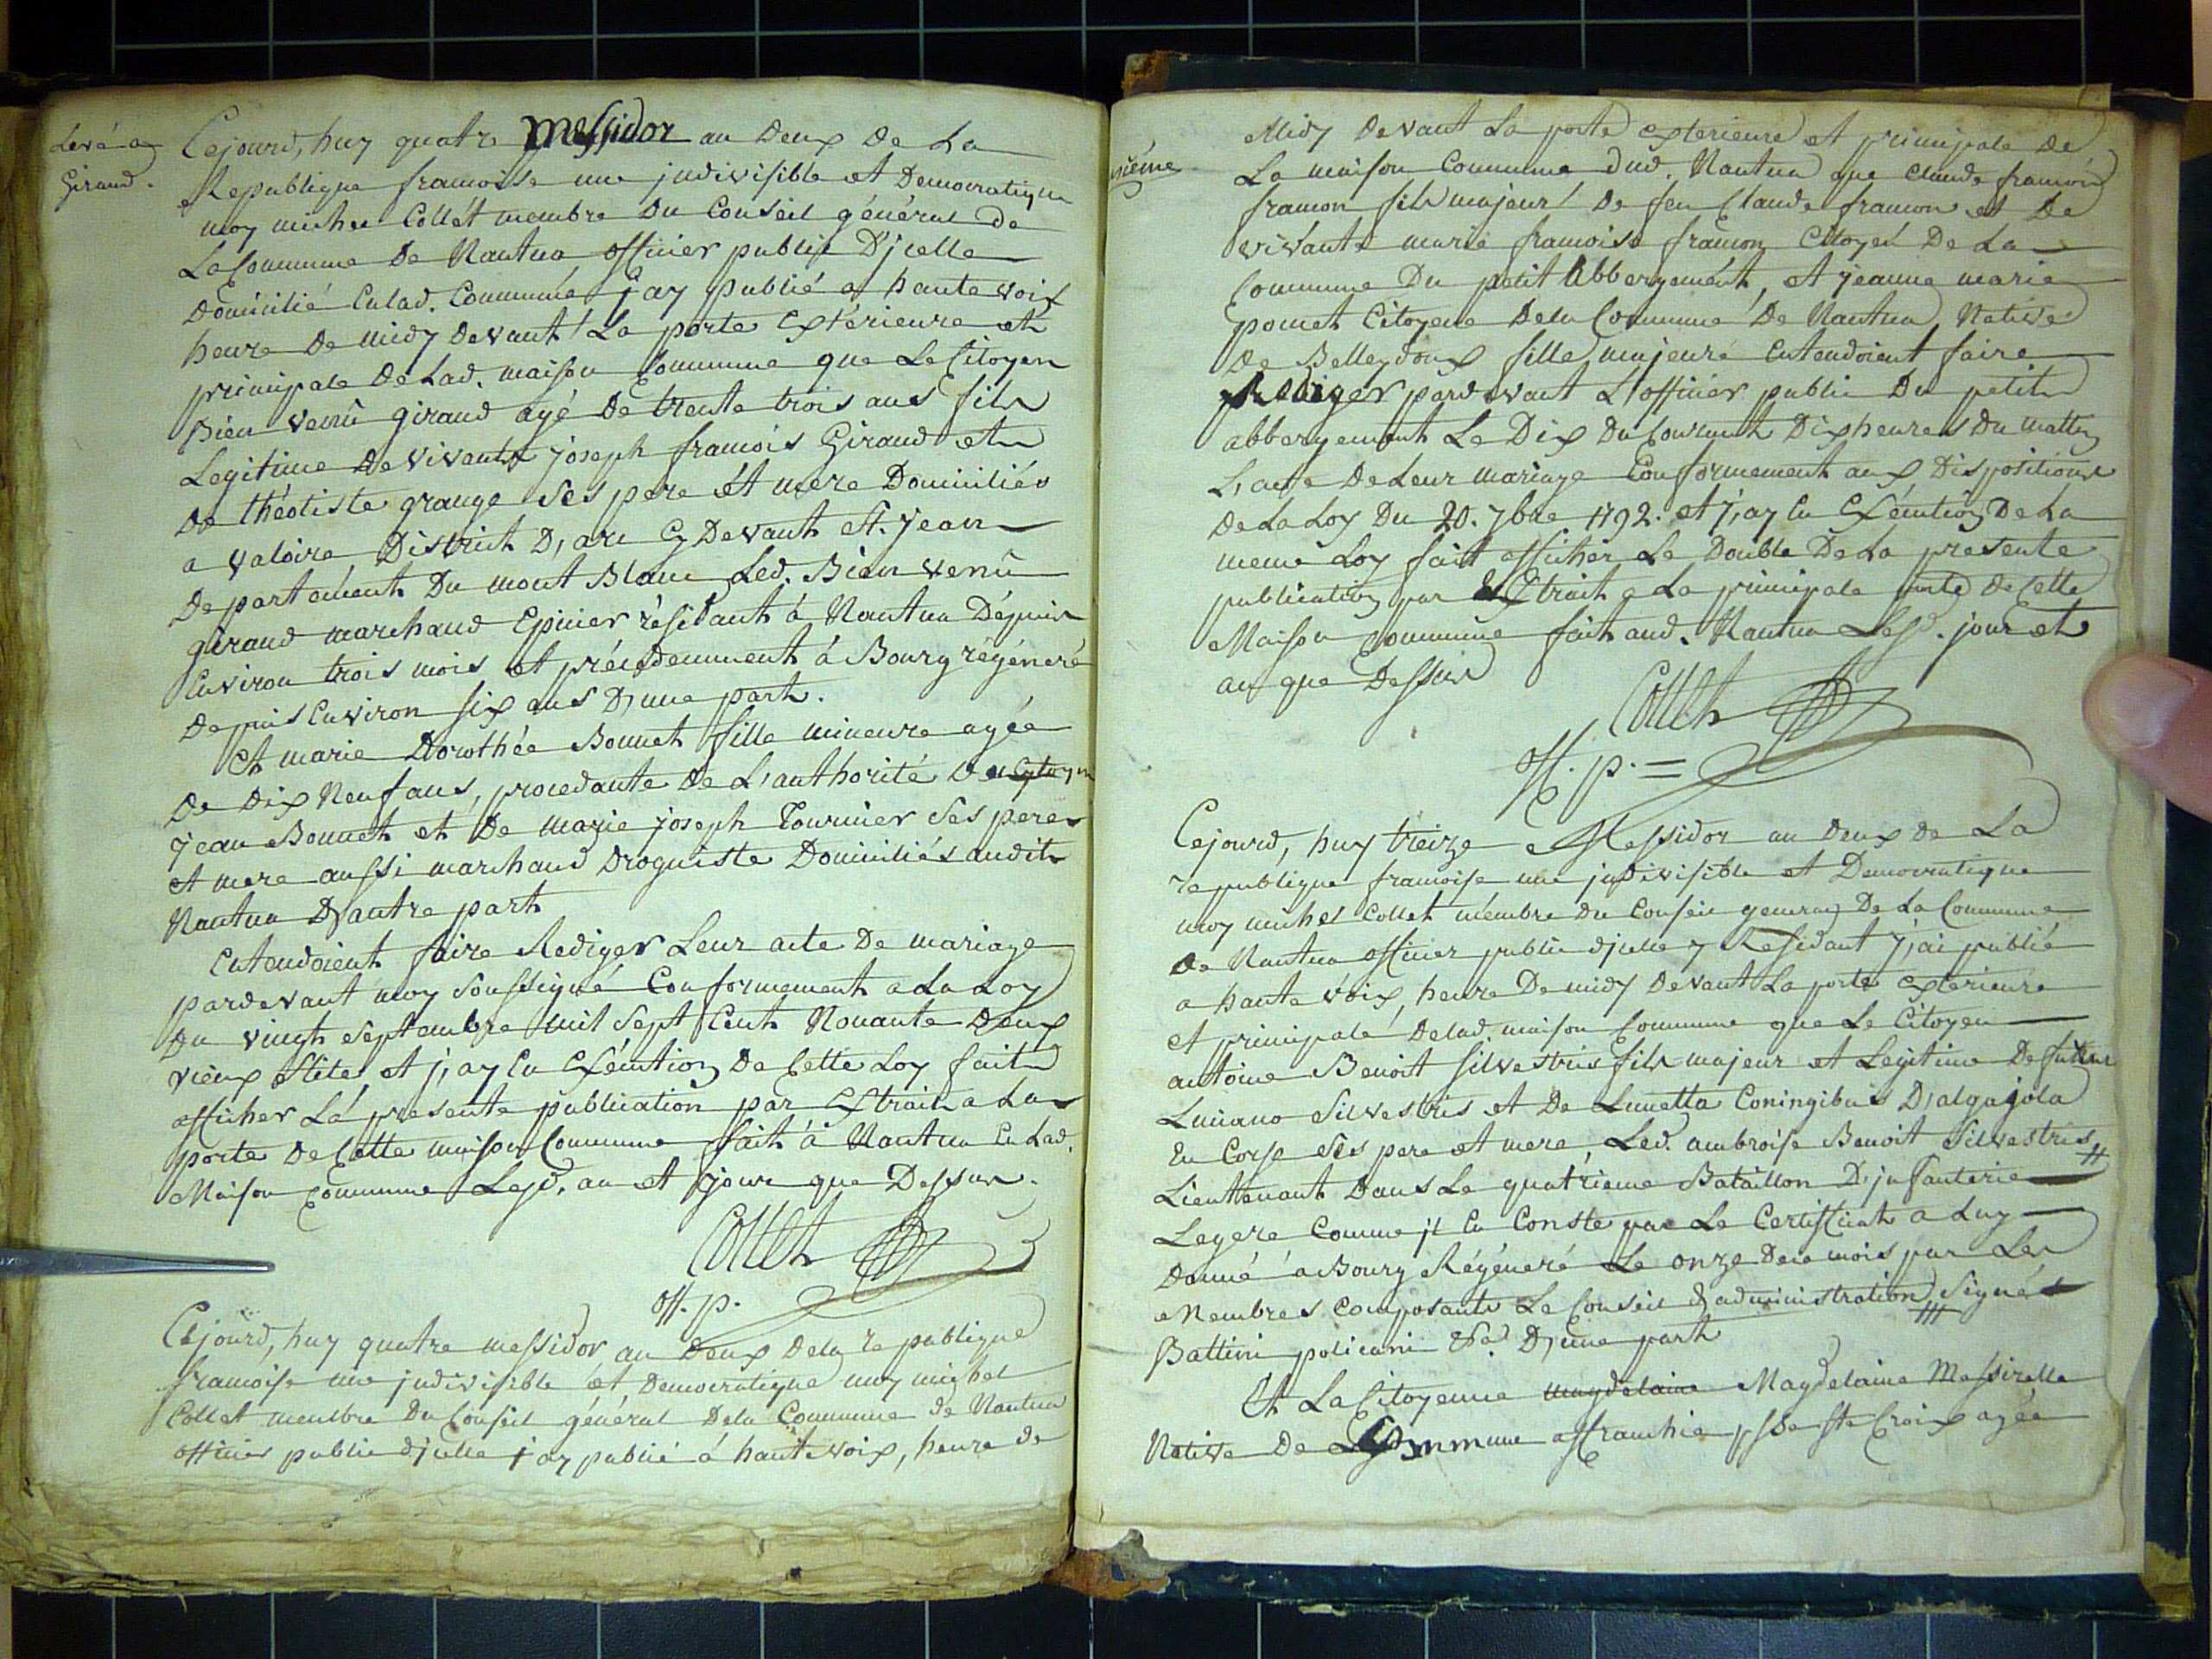 Levé a
Giraud.
Cejourd,huy quatre messidor an Deux De La
Republique francoise une jndivisible et Democratique
moy michel Collet membre Du Conseil général de
La Commune De Nantua officier public D'jcelle
Domicilié Enlad. Commune, j'ay publié a haute voix
heure De midy Devant La porte Extérieure et
principale De Lad. maison Commune que Le Citoyen
Bien venû giraud agé De trente trois ans fils
Legitime De vivants joseph francois Giraud et
De théotiste grange ses pere et mere Domiciliés
a valoire District D,arc Cy Devant st. jean
Departement Du mont Blanc Led. Bien venû
giraud marchand Epicier résidant á Nantua Dépuis
Environ trois mois et précédemment á Bourg régéneré
Depuis Environ six ans D,une part.
Et marie Dorothée Bonnet fille mineure agée
De Dix Neuf ans, procedante De L'authorité De Cytoyen
jean Bonnet et De marie joseph Tournier ses pere
et mere aussi marchand Droguiste Domiciliés audit
Nantua D'autre part
Entendoient faire Rediger Leur acte De mariage
pardevant moy soussigné Conformement a La Loy
Du vingt septembre mil sept Cent Nonante Deux
vieux stile et j,ay En Exécution De Cette Loy fait
afficher La presente publication par Extrait a La
porte De Cette maison Commune fait á Nantua En Lad.
Maison Commune Lesd. an et jour que Dessus.
Collet
off. p.
Cejourd,huy quatre messidor an Deux Dela republique
francoise une jndivisible et Democratique moy michel
Collet membre Du Conseil général Dela Commune de Nantua
officier public djcelle j'ay publié á haute voix, heure de
Midy Devant La porte exterieure et principale De
La maison Commune dud. Nantua que claude francon
francon fils majeur De feu Claude francon et De
vivante marie francoise francon Citoyen De La
Commune Du petit Abbergement, et jeanne marie
poncet Citoyene Dela Commune De Nantua Native
De Belleydoux fille majeure entendoient faire
Rediger pardevant L'officier public Du petit
abbergement Le Dix Du Courant Dix heures Du matin
L,acte De Leur mariage Conformement aux Dispositions
De La Loy Du 20. 7bre 1792. et j,ay En Exécution De La
meme Loy fait afficher Le Double De La presente
publication par Extrait a La principale porte De Cette
Maison commune fait aud. Nantua Lesd. jour et
an que Dessus
Collet
off. p. =
Cejourd, huy treize Messidor an Deux De La
republique francoise une jndivisible et Democratique
moy michel Collet membre Du Conseil general De La Commune
De Nantua officier public djcelle y Residant j'ai publié
a haute voix, heure De midy Devant La porte exterieure
et principale Delad. maison Commune que Le Citoyen
antoine Benoit silvestris fils majeur et Legitime De
Luciano Silvestris et De Lunetta Coningibus D,algajola
En Corse ses pere et mere, Led. ambroise Benoit Silvestris
Lieuttenant Dans Le quatrieme Bataillon D,jnfanterie
Legere Comme jl En Conste par Le Certificat a Luy
Donné á Bourg Régéneré Le onze De ce mois par Les
Membres composants Le Conseil D'administration, signés
Battini policani &a. D,une part
Et La Citoyenne magdelaine Magdelaine Massirelle
Native De Commune affranchie psse ste Croix agée